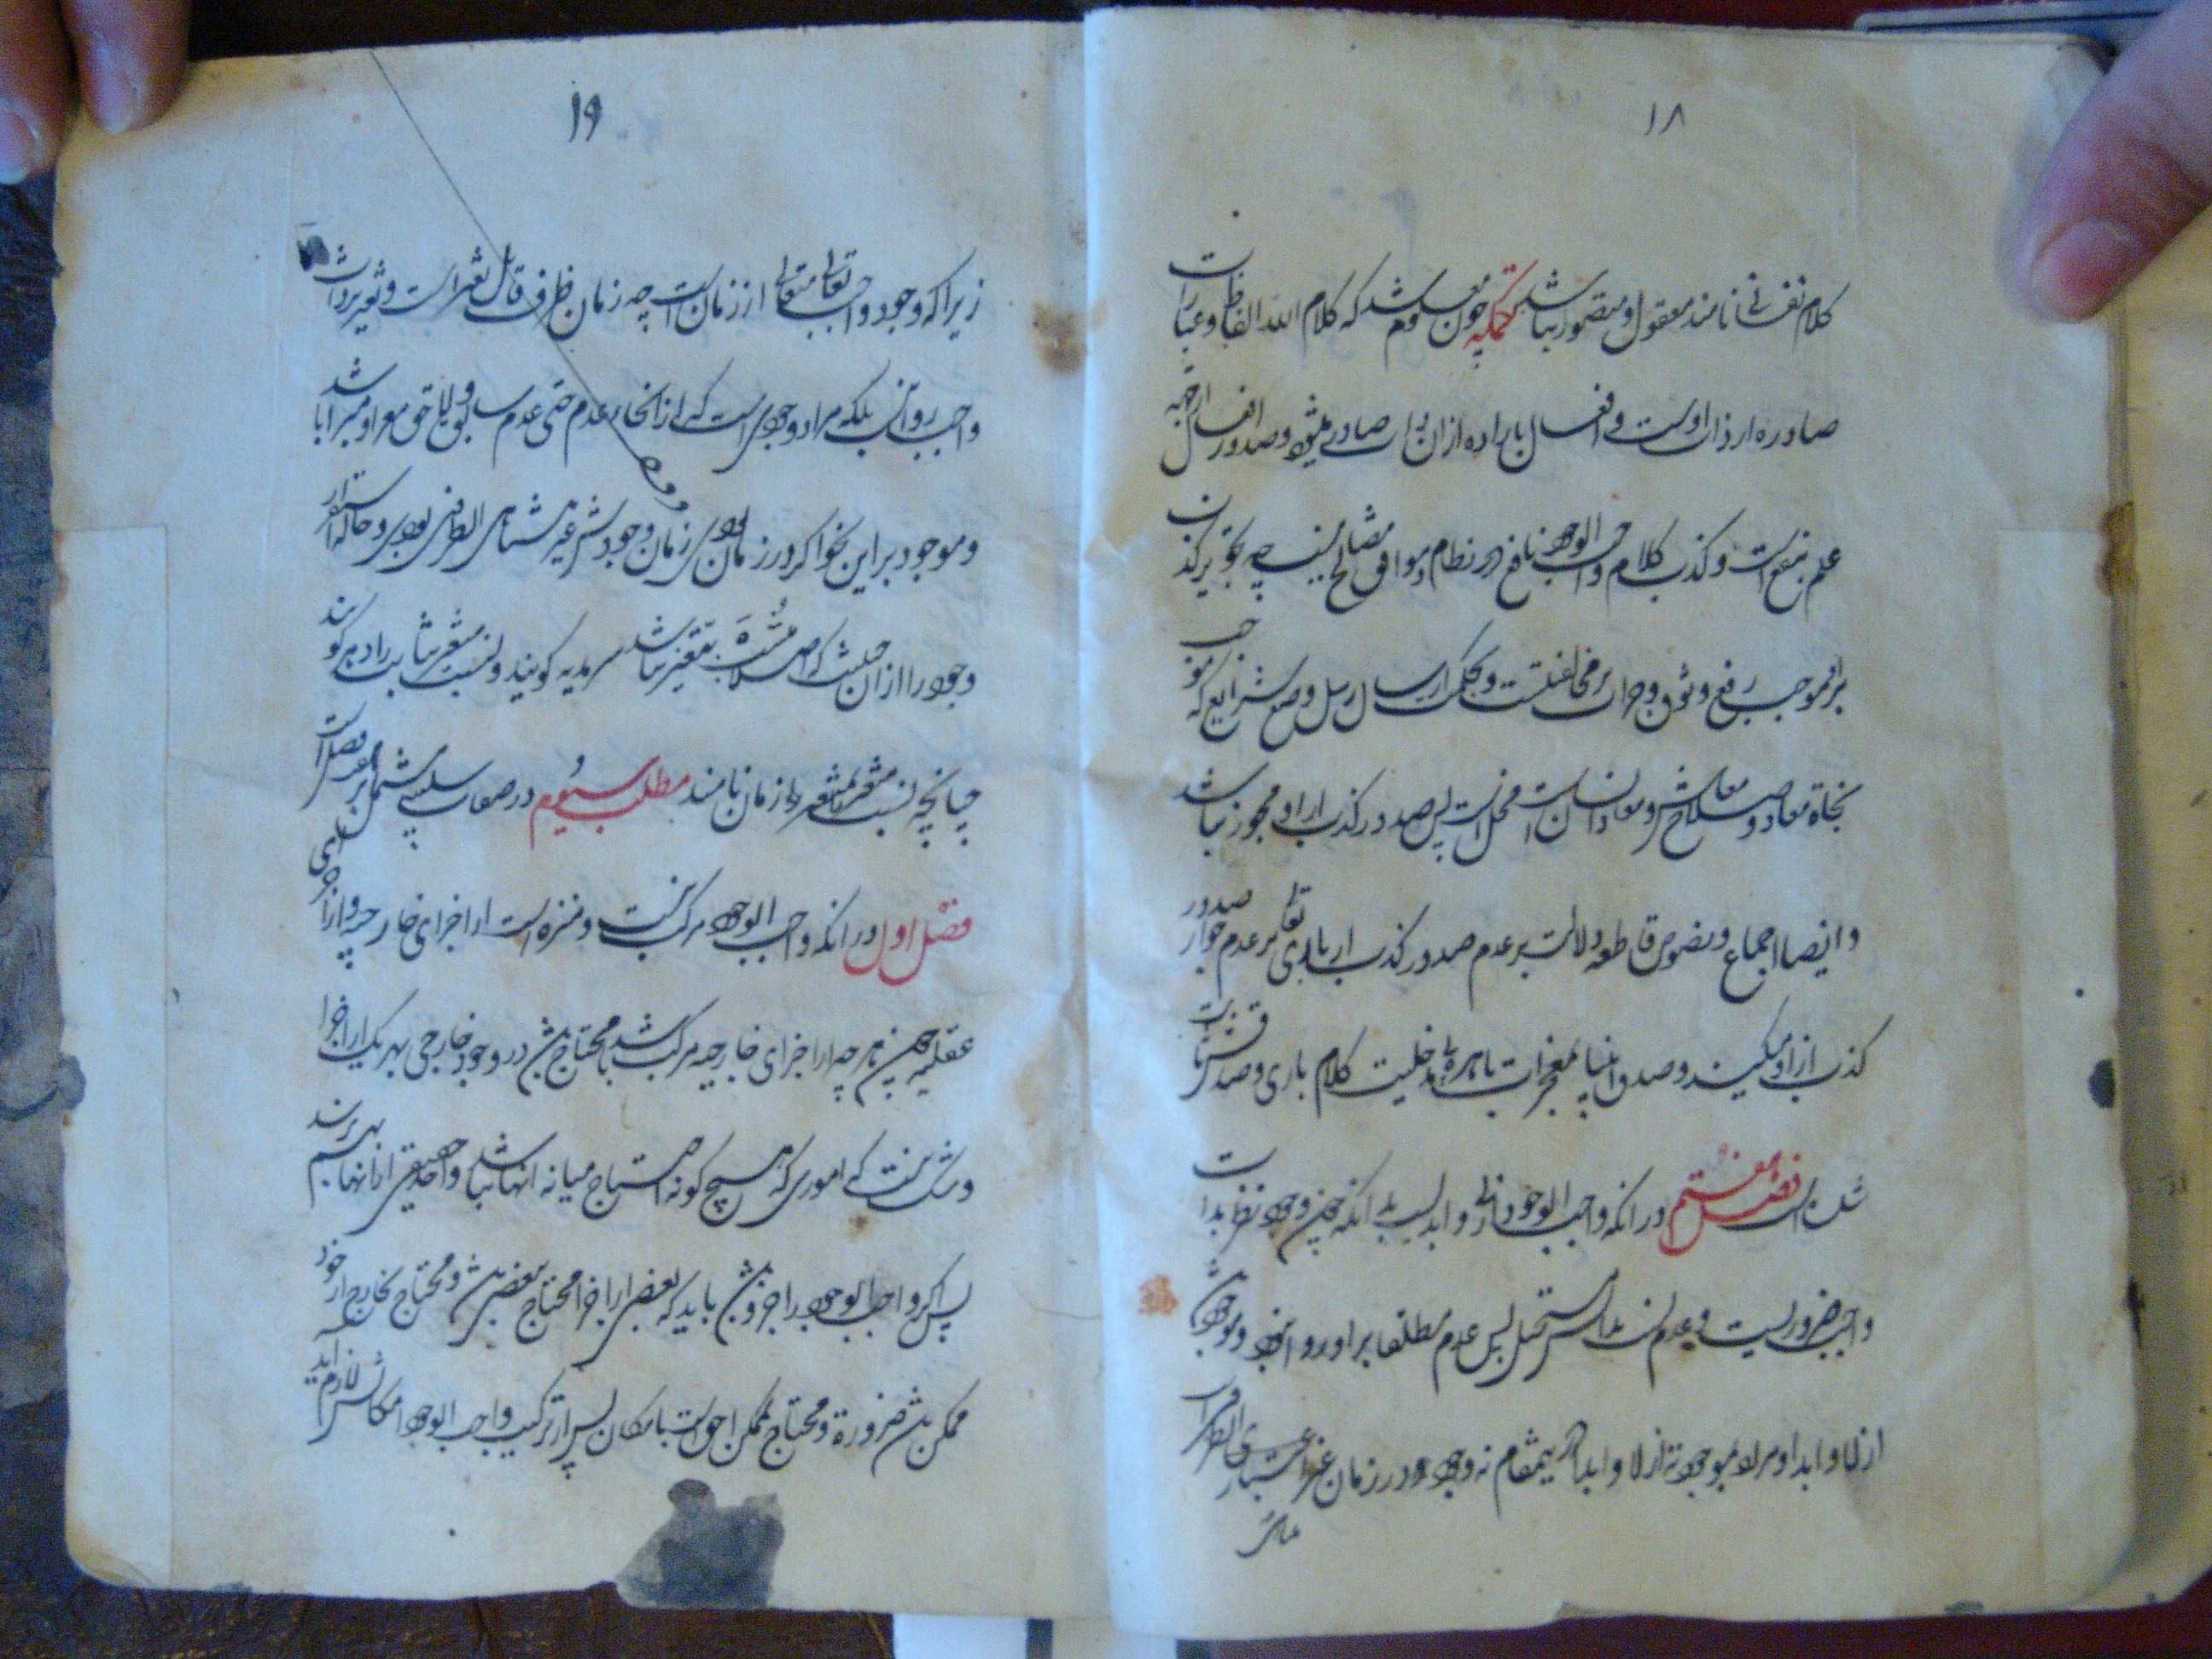 ۱۸
کلام نفسانی نامند معقول و متصور نباشد تکمله چون معلوم شد که کلام الله الفاظ و عبارات
صادره از ذات اوست و افعال بی اراده از آن ذات صادر نمیشود و صدور افعال
علم ممتنع است و کذب کلام واجب الوجود نافع در نظام و موافق مصالح نیست چه تجویز کذب
بر او موجب رفع وثوق و جرات بر مخالفتست و بحکم ارسال رسل و وضع شرایع که موجب
نجاة معاد و صلاح معاش و معاد انسان است مخل است پس صدور کذب از او مجوز نباشد
و ایضا اجماع و نصوص قاطعه دلالت بر عدم صدور کذب از باری تعالی بر عدم جواز صدور
کذب از او میکنند و صدق انبیا بمعجزات باهره بی مدخلیت کلام باری و صدقش ثابت
شده است فصل هفتم در آنکه واجب الوجود ازلی و ابدیست بدانکه چون وجود نظر بذات
واجب ضروریست و عدم نسبت بذاتش مستحیل پس عدم مطلقا بر او روا نبود و موجود باشد
ازلا و ابدا و مراد بموجودیة ازلا و ابدا در این مقام نه وجود در زمان غیر متناهی الطرفین است
۱۹
زیرا که وجود واجب تعالی متعالی از زمان است چه زمان ظرف قابل تغیر است و تغیر بر ذات
واجب روا نی بلکه مراد وجودی است که از انحاء عدم حتی عدم سابق و لاحق معرا و مبرا باشد
و موجود بر این نحو اگر در زمان بودی زمان وجودش غیر متناهی الطرفین بودی و حالة استمرار
وجود را از آن حیثیت که اصلا متغیر نباشد سرمدیه گویند و نسبت متغیر بثابت را دهر گویند
چنانچه نسبت متغیر بمتغیر را زمان نامند مطلب سیوم در صفات سلبیه مشتمل بر فصل است
فصل اول در آنکه واجب الوجود مرکب نیست و منزه است از اجزای خارجیه و از اجزای
عقلیه چنین هر چه از اجزای خارجیه مرکب باشد محتاج باشد در وجود خارجی بهر یک از اجزا
و شک نیست که اموری که هیچ گونه احتیاج میانه آنها نباشد واحد حقیقی از آنها بهم نرسد
پس اگر واجب الوجود را جزو باشد باید که بعضی از اجزا محتاج ببعضی باشد و محتاج بخارج از خود
ممکن باشد ضرورة و محتاج بممکن احق است بامکان پس از ترکیب واجب الوجود امکانش لازم آید